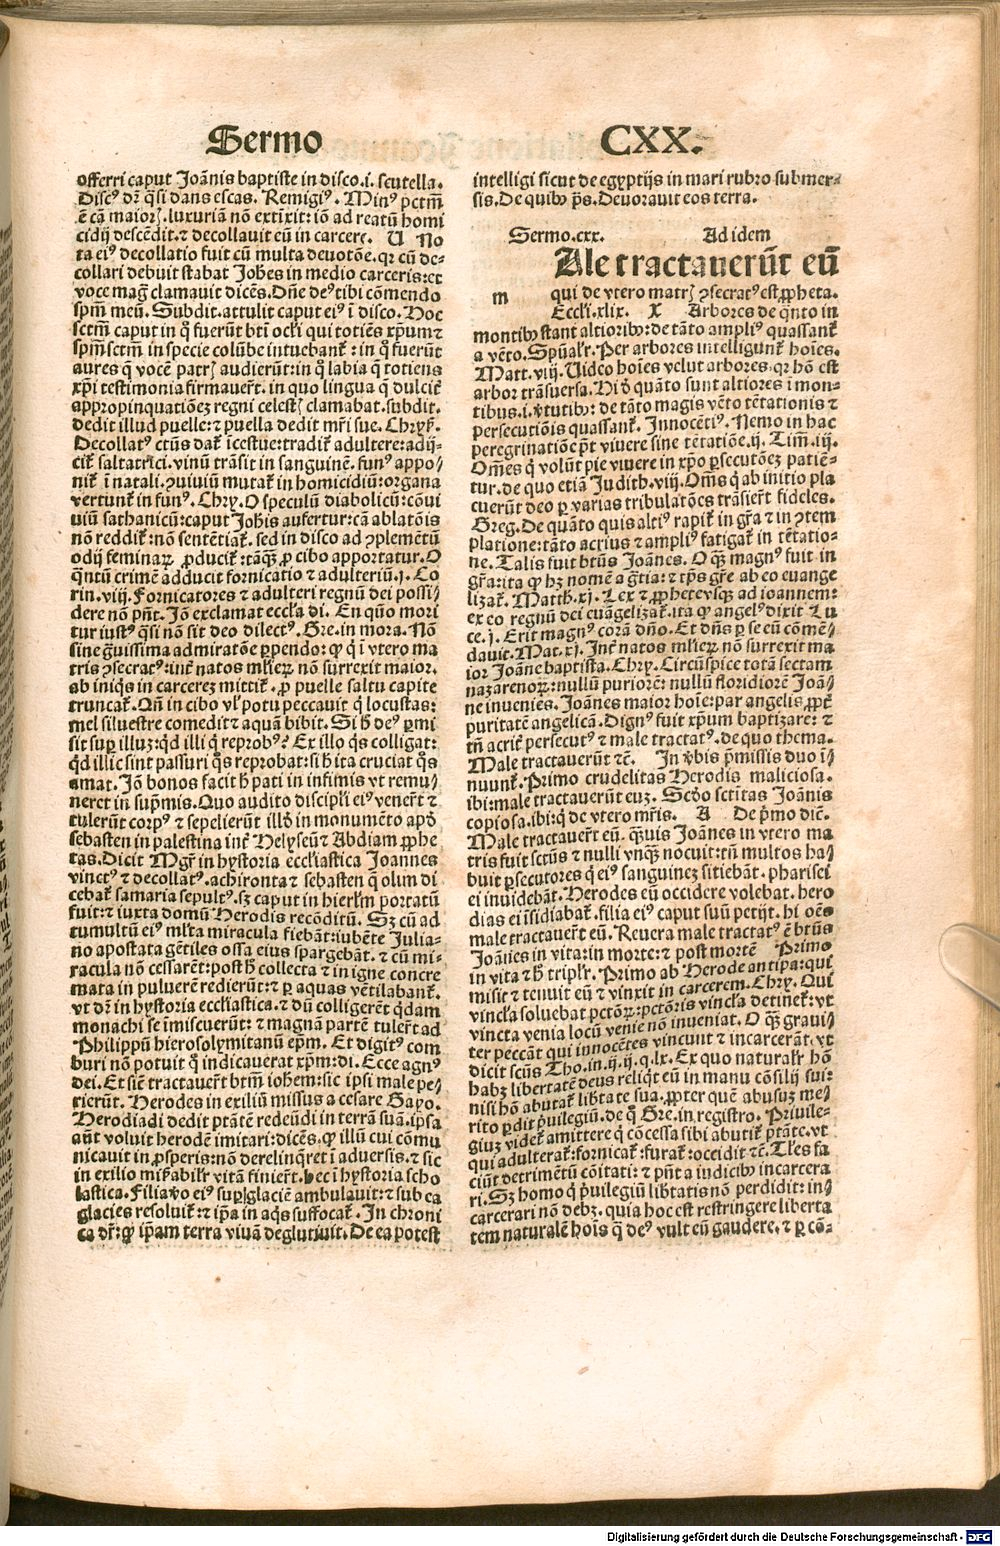 Sermo CXX.
offerri caput Joānis baptiste in disco.i. scutella.
Discꝰ dr̄ q̄si dans escas. Remigiꝰ. Minꝰ pctm̄
ē cā maioꝝ. luxuriā nō extīxit: iō ad reatū homi
cidij descēdit. ⁊ decollavit eū in carcere. U No
ta eiꝰ decollatio fuit cū multa devotōne. qꝛ cū de-
collari debuit stabat Johes in medio carceris: et
voce mag̃ clamavit dicēs. Dn̄e deꝰ tibi cōmendo
sp̄m meū. Subdit. attulit caput eiꝰ ī disco. Hoc
sctm̄ caput in q̄ fuerūt bt̄i ocl̄i qui totiēs xp̄um ⁊
sp̄m sctm̄ in specie colūbe intuebant̄: in q̄ fuerūt
aures q̄ vocē patrꝫ audierūt: in q̄ labia q̄ totiens
xp̄i testimonia firmauer̄t. in quo lingua q̄ dulcit̄
appropinquatiōeꝫ regni celestꝫ clamabat. subdit.
dedit illud puelle: ⁊ puella dedit mr̄i sue. Chrys̄.
Decollatꝰ ctūs dat̄ icestue: tradit̄ adultere: adij-
cit̄ saltatrici. vinū trāsit in sanguinē. funꝰ appo-
nit̄ ī natali. ꝯuiuiū mutat̄ in homicidiū: organa
vertunt̄ in funꝰ. Chry. O speculū diabolicū: cōui
uiū sathanicū: caput Johis aufertur: cā ablatōis
nō reddit̄: nō sentētiat̄. sed in disco ad ꝯplemētū
odij feminaꝝ ꝓducit̄: tāq̄ꝫ ꝓ cibo apportatur. O
q̄ntū crimē adducit fornicatio ⁊ adulteriū. j. Co
rin. vij. Fornicatores ⁊ adulteri regnū dei possi/
dere nō pn̄t. Jō exclamat eccl̄a di. En quo mori
tur iustꝰ q̄si nō sit deo dilectꝰ. Gre. in mora. Nō
sine g̃uissima admiratōe ꝑpendo: ꝙ q̄ ī vtero ma
tris ꝯsecratꝰ: int̄ natos ml̄ieꝝ nō surrexit maior.
ab iniq̄s in carcereꝫ mittit̄. ꝓ puelle saltu capite
truncat̄. Qn̄ in cibo vl̄ potu peccauit q̄ locustas:
mel siluestre comedit ⁊ aquā bibit. Si h̄ deꝰ ꝑmi
sit suꝑ illuꝫ: qd̄ illi q̄ reprobꝰ? Ex illo q̄s colligat:
qd̄ illic sint passuri q̄s reprobat: si h̄ ita cruciat q̄s
amat. Jō bonos facit h̄ pati in infimis vt remu/
neret in sup̄mis. Quo audito discipl̄i eiꝰ vener̄t ⁊
tulerūt corpꝰ ⁊ sepelierūt illd̄ in monumēto apd̄
sebasten in palestina int̄ Helyseū ⁊ Abdiam ꝓphe
tas. Dicit Mgr̄ in hystoria eccl̄iastica Joannes
vinctꝰ ⁊ decollatꝰ. achironta ⁊ sebasten q̄ olim di
cebat̄ samaria sepultꝰ. sꝫ caput in hierl̄m portatū
fuit: ⁊ iuxta domū Herodis recōditū. Sꝫ cū ad
tumultū eiꝰ ml̄ta miracula fiebāt: iubēte Julia-
no apostata gētiles ossa eius spargebāt. ⁊ cū mi-
racula nō cessarēt: post h̄ collecta ⁊ in igne concre
mata in puluerē redierūt: ⁊ ꝑ aquas vētilabant̄.
vt dr̄ in hystoria eccl̄iastica. ⁊ dū colligerēt q̄dam
monachi se īmiscuerūt: ⁊ magnā partē tuler̄t ad
Philippū hierosolymitanū ep̄m. Et digitꝰ com
buri nō potuit q̄ indicauerat xp̄m: di. Ecce agnꝰ
dei. Et sic̄ tractauer̄t btm̄ iohem: sic ipsi male pe/
rierūt. Herodes in exiliū missus a cesare Gayo.
Herodiadi dedit ptātē redeūdi in terrā suā. ipsa
aūt voluit herodē imitari: dicēs. ꝙ illū cui cōmu
nicauit in ꝓsperis: nō derelinq̄ret ī aduersis. ⁊ sic
in exilio mis̄abilr̄ vitā finier̄t. hec ī hystoria scho
lastica. Filia ꝟo eiꝰ suꝑ glaciē ambulauit: ⁊ sub ea
glacies resoluit̄: ⁊ ip̄a in aq̄s suffocat̄. In chroni
ca dr̄: ꝙ ip̄am terra viuā deglutiuit. De ea potest
intelligi sicut de egyptijs in mari rubro submer-
sis. De quibꝰ p̄s. Deuorauit eos terra.
Sermo.cxx. Ad idem
m Ale tractauerūt eū
qui de vtero matrꝫ ꝯsecratꝰ est ꝓpheta.
Eccl̄i. xlix. X Arbores de q̄nto in
montibꝰ stant altioribꝰ: de tāto ampliꝰ quassant̄
a vēto. Spūalr̄. Per arbores intelligunt̄ hoīes.
Matt. viij. Uideo hoīes velut arbores. qꝛ hō est
arbor trāsuersa. Hi ꝟo quāto sunt altiores ī mon-
tibus. i. ꝟtutibꝰ: de tāto magis vēto tētationis ⁊
persecutiōis quassant̄. Innocētiꝰ. Nemo in hac
peregrinatiōe p̄t vivere sine tētatiōe. ij. Tim̄. iij.
Om̄es q̄ volūt pie vivere in xp̄o ꝑsecutōeꝫ patiē-
tur. de quo etiā Judith. viij. Om̄s q̄ ab initio pla
cuerūt deo ꝑ varias tribulatōes trāsier̄t fideles.
Greg. De quāto quis altiꝰ rapit̄ in gr̄a ⁊ in ꝯtem
platione: tāto acrius ⁊ ampliꝰ fatigat̄ in tētatio-
ne. Talis fuit bt̄us Joānes. O q̄ꝫ magnꝰ fuit in
gr̄a: ita ꝙ hꝫ nomē a gr̄tia: ⁊ tp̄s gr̄e ab eo euange
lizat̄. Matth. xj. Lex ⁊ ꝓphete vsqꝫ ad ioannem:
ex eo regnū dei euāgelizat̄. ita ꝙ angelꝰ dixit Lu
ce. j. Erit magnꝰ corā dn̄o. Et dn̄s ꝑ se eū cōmē/
dauit. Mat. xj. Int̄ natos ml̄ieꝝ nō surrexit ma
ior Joāne baptista. Chry. Circūspice totā sectam
nazarenoꝝ: nullū puriorē: nullū floridiorē Joā/
ne inuenies. Joānes maior hoīe: par angelis ꝓpt̄
puritatē angelicā. Dignꝰ fuit xp̄um baptizare: ⁊
tn̄ acrit̄ persecutꝰ ⁊ male tractatꝰ. de quo thema.
Male tractauerūt ⁊c̄. In ꝟbis p̄missis duo ī/
nuunt̄. Primo crudelitas Herodis maliciosa.
ibi: male tractauerūt euꝫ. Scd̄o sctītas Joānis
copiosa. ibi: q̄ de vtero mr̄is. A De p̄mo dic̄.
Male tractauer̄t eū. q̄uis Joānes in vtero ma
tris fuit sctūs ⁊ nulli vnq̄ꝫ nocuit: tn̄ multos ha/
buit ꝑsecutores q̄ eiꝰ sanguineꝫ sitiebāt. pharisei
ei inuidebāt. Herodes eū occidere volebat. hero
dias ei īsidiabat̄. filia eiꝰ caput suū petijt. hi oēs
male tractauer̄t eū. Reuera male tractatꝰ ē bt̄us
Joānes in vita: in morte: ⁊ post mortē Primo
in vita ⁊ h̄ triplr̄. Primo ab Herode antipa: qui
misit ⁊ tenuit eū ⁊ vinxit in carcerem. Chry. Qui
vincl̄a soluebat pctōꝝ: pctōris vincl̄a detinet̄: vt
vincta venia locū venie nō inueniat. O q̄ꝫ graui/
ter peccāt qui innocētes vinciunt ⁊ incarcerāt. vt
dicit scūs Tho. in. ij. ij. q. lx. Ex quo naturalr̄ hō
habꝫ libertatē deus reliq̄t eū in manu cōsilij sui:
nisi hō abutat̄ lib̄tate sua. ꝓpter quē abusuꝫ me/
rito ꝑdit p̄uilegiū. de q̄ Gre. in registro. Priuile-
giuꝫ videt̄ amittere q̄ cōcessa sibi abutit̄ ptāte. vt
qui adulterat̄: fornicat̄: furat̄: occidit ⁊c̄. Tl̄es fa
ciūt detrimētū cōitati: ⁊ pn̄t a iudicibꝰ incarcera
ri. Sꝫ homo q̄ p̄uilegiū lib̄tatis nō perdidit: in/
carcerari nō debꝫ. quia hoc est restringere liberta
tem naturalē hoīs q̄ deꝰ vult eū gaudere. ⁊ ꝑ cō-
Digitalisierung gefördert durch die Deutsche Forschungsgemeinschaft - DFG